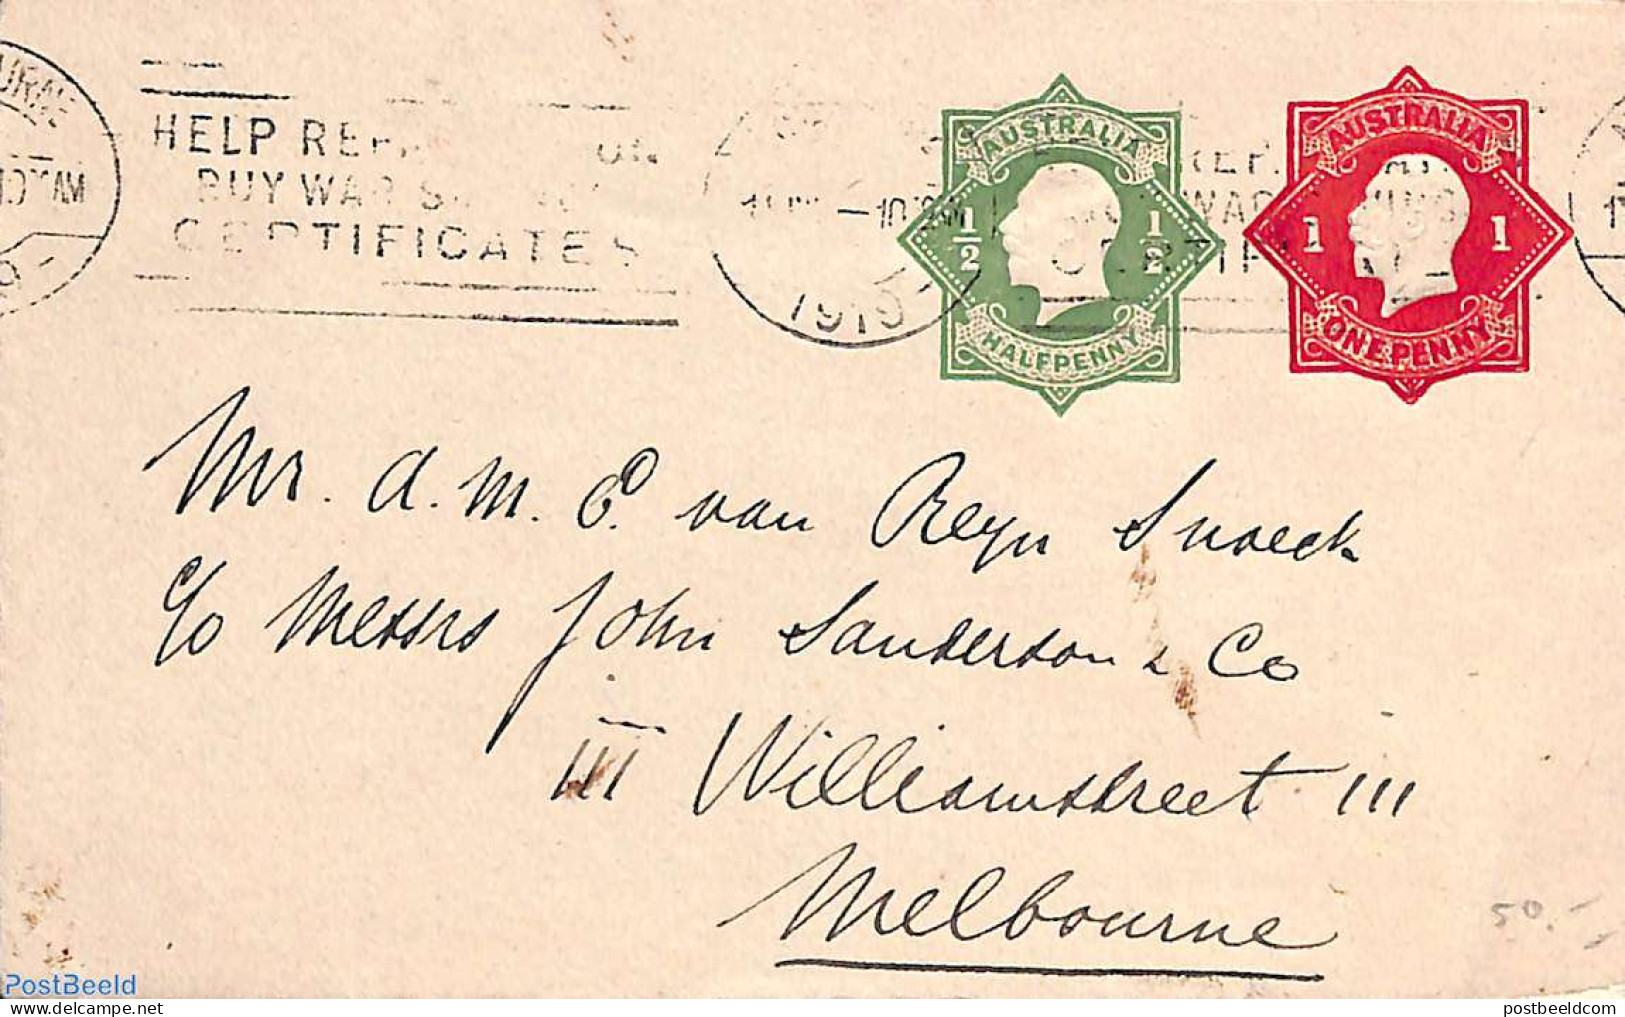 HELP
BUY WAR
CERTIFICATES
1919
AUSTRALIA
½ ½
HALFPENNY
AUSTRALIA
1 1
ONE PENNY
Mr. A. M. C. van Reyn Snoeck
c/o Messrs John Sanderson & Co
111 Williamstreet 111
Melbourne
50.-
PostBeeld
postbeeldcom